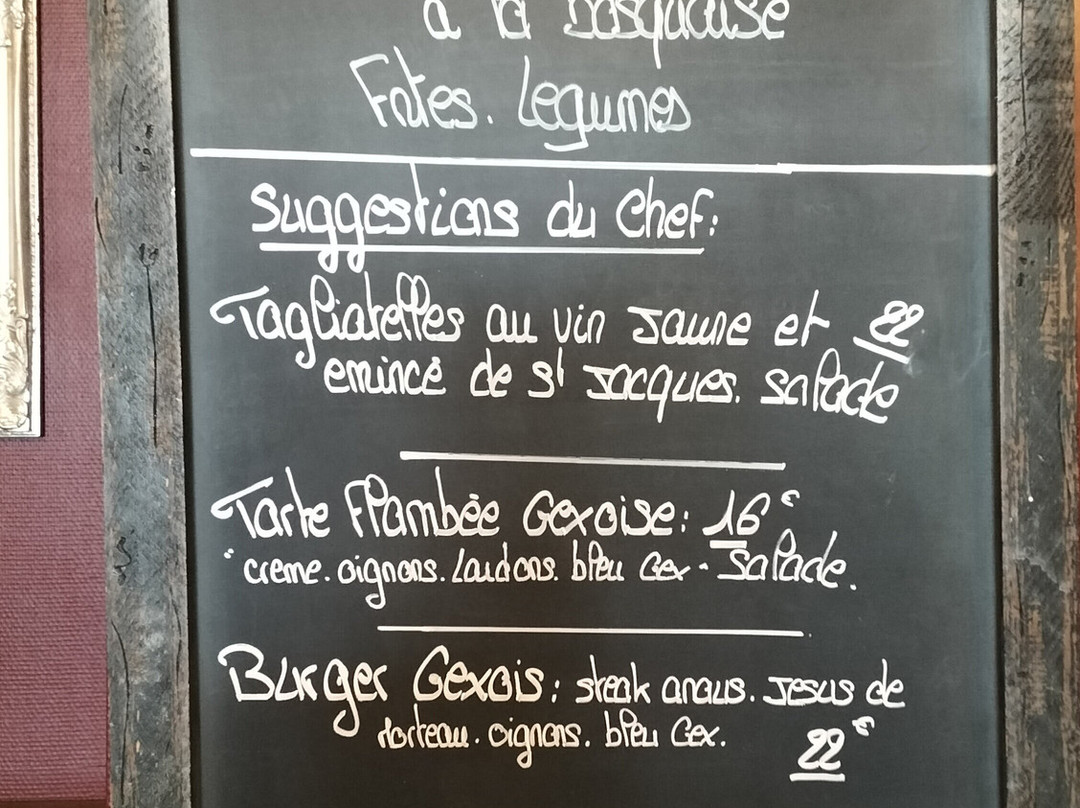 à la basquaise
Pates. Legumes
Suggestions du Chef:
Tagliatelles au vin Jaune et 22
emincé de St Jacques. salade
Tarte Flambée Gexoise: 16€
"creme. oignons. Lardons. bleu Gex - Salade.
Burger Gexois: steak angus. Jesus de
morteau. oignons. bleu Gex. 22€